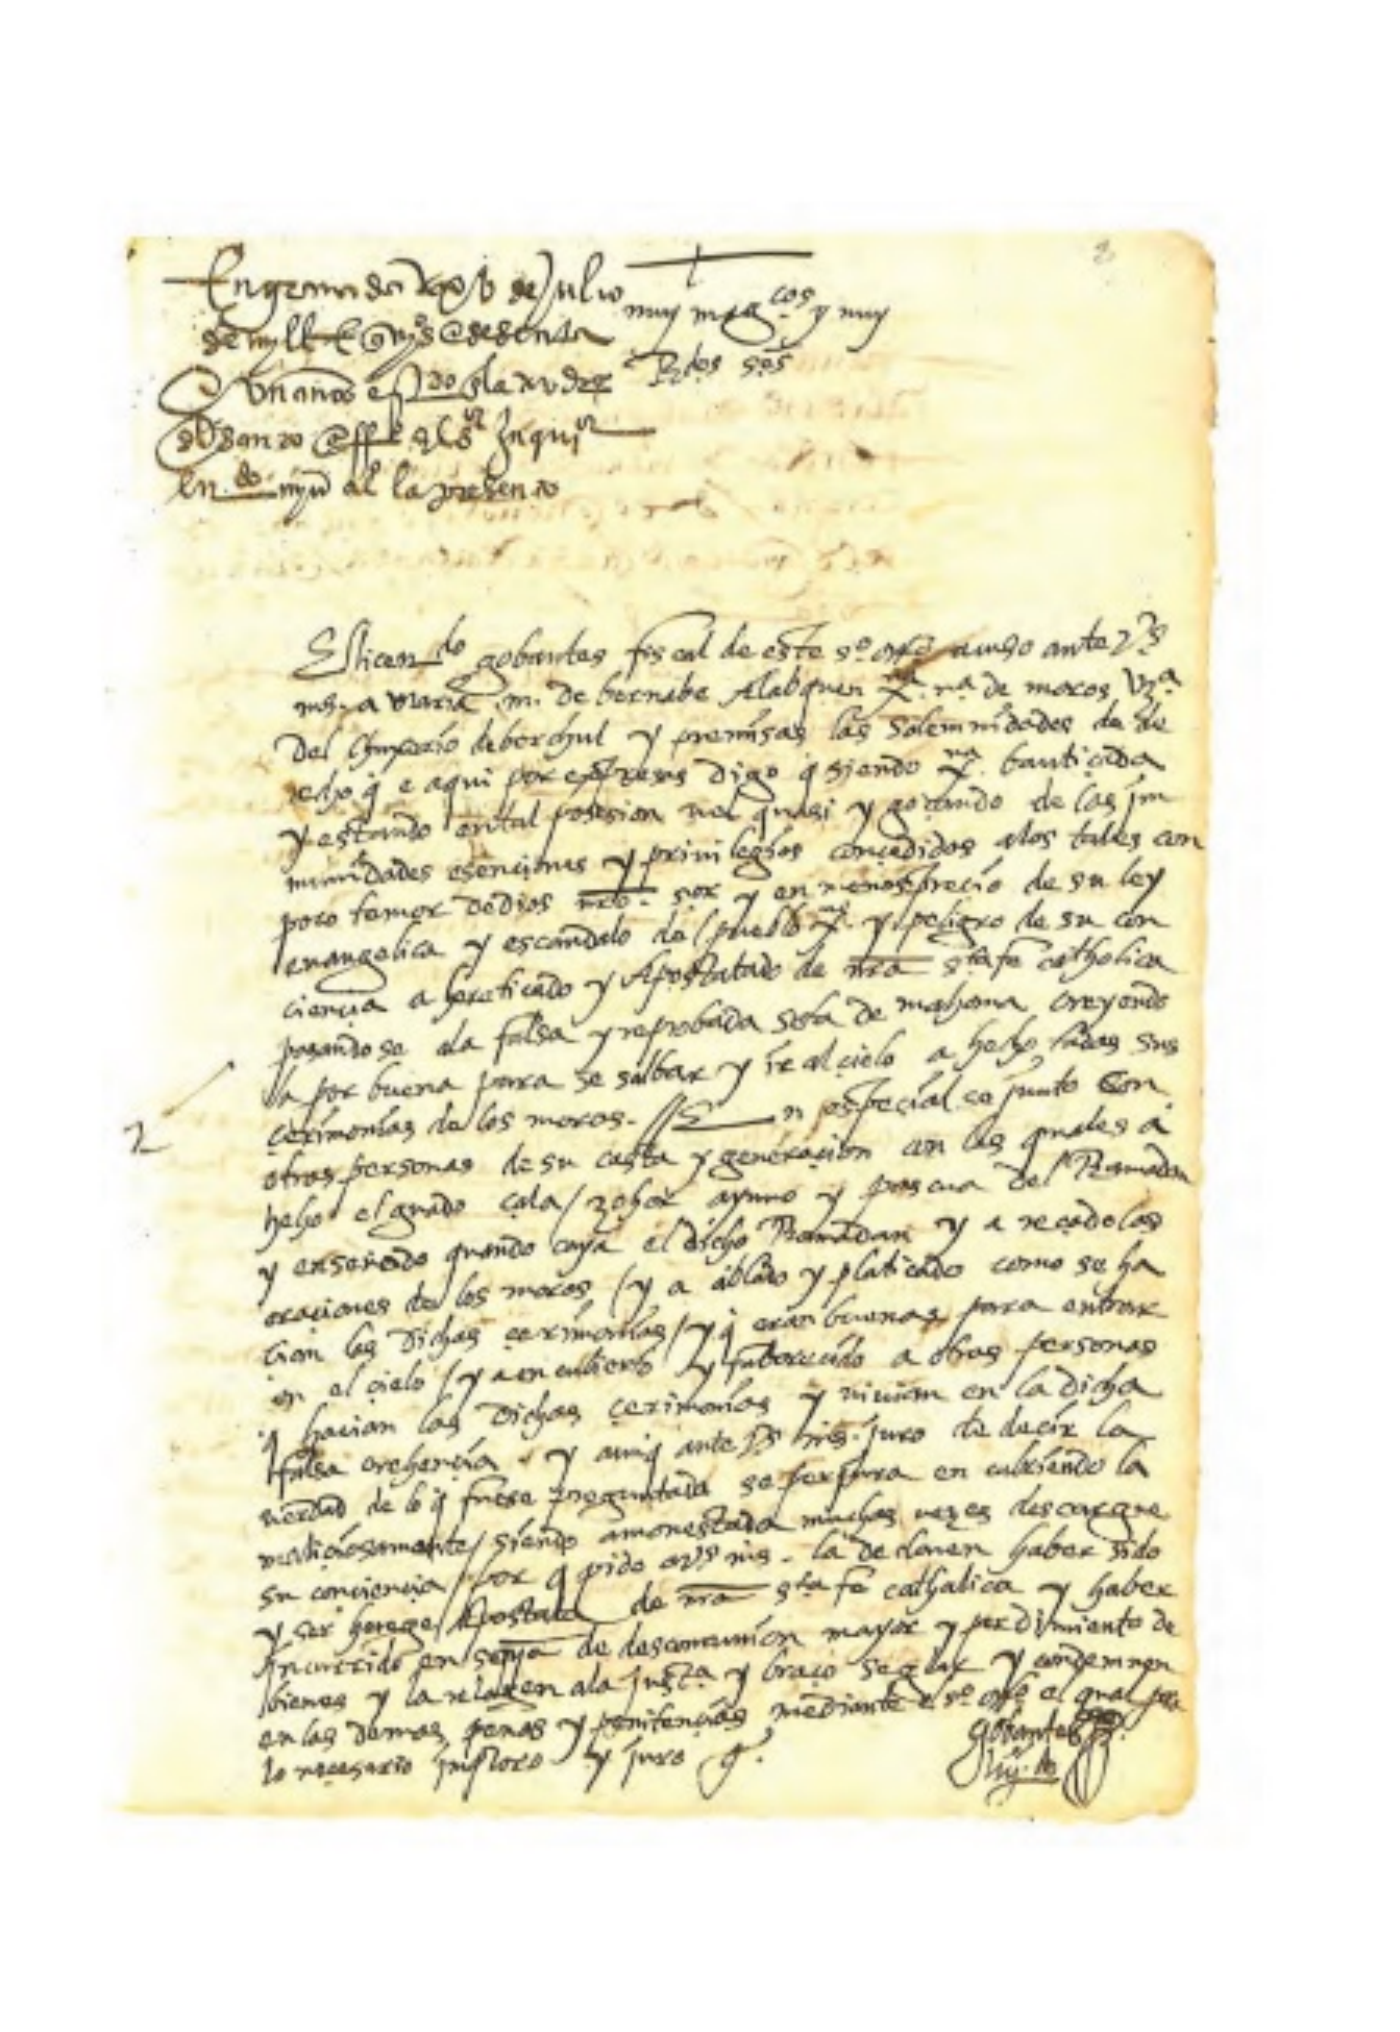 2
En granada xxv de Julio
de myll E qnys e sesenta
E un años estando en la audiª
del santo offº el sr Inqui or
lndo al la presento
muy magcos y muy
Rdos sos
El licendo gobantes fiscal de este sº offº acuso ante Vs
ms. a maria m. de bernabe Alabquen xª. nª. de moros Vzª.
del Chuperio de berchul y premisas las solemnidades de de
recho q e aqui por espresas digo q siendo xna. bautiçada
y estando en tal posesion vel quasi y goçando de las jm
munidades esenciones y privilegios conçedidos a los tales con
poco temor de dios nro. sor y en menosprecio de su ley
evangelica y escandalo del pueblo xno. y peligro de su con
ciençia a hereticado y Apostatado de nra sta fe catholica
pasandose a la falsa y reprobada seta de mahoma creyendo
la por buena para se salbar y ir al cielo a hecho todas sus
çerimonias de los moros. // En especial se junto con
2
otras personas de su casta y generaçion con las quales a
hecho el guado çala / zohor ayuno y pascua del Ramadan
y enseñado quando caya el dicho Ramadan y a reçado las
oraçiones de los moros / y a ablado y platicado como se ha
cian las dichas çerimonias / y q eran buenas para entrar
en el çielo / y a encubierto y faboreçido a otras personas
q hacian las dichas çerimonias y vivian en la dicha
falsa crehençia. y aunq ante Vs ms. juro de decir la
verdad de lo q fuese preguntada se perjura encubriendo la
maliçiosamente / siendo amonestada muchas vezes descargue
su conçiençia / por q pido a Vs ms. la declaren haber sido
y ser herege Apostata de nra sta fe catholica y haber
jncurrido en sença de descomunion mayor y perdimiento de
bienes y la relaxen a la justª y braço seglar y condemnen
en las demas penas y penitençias mediante el sº offº el qual para
lo neçesario jmploro y juro
gobantes